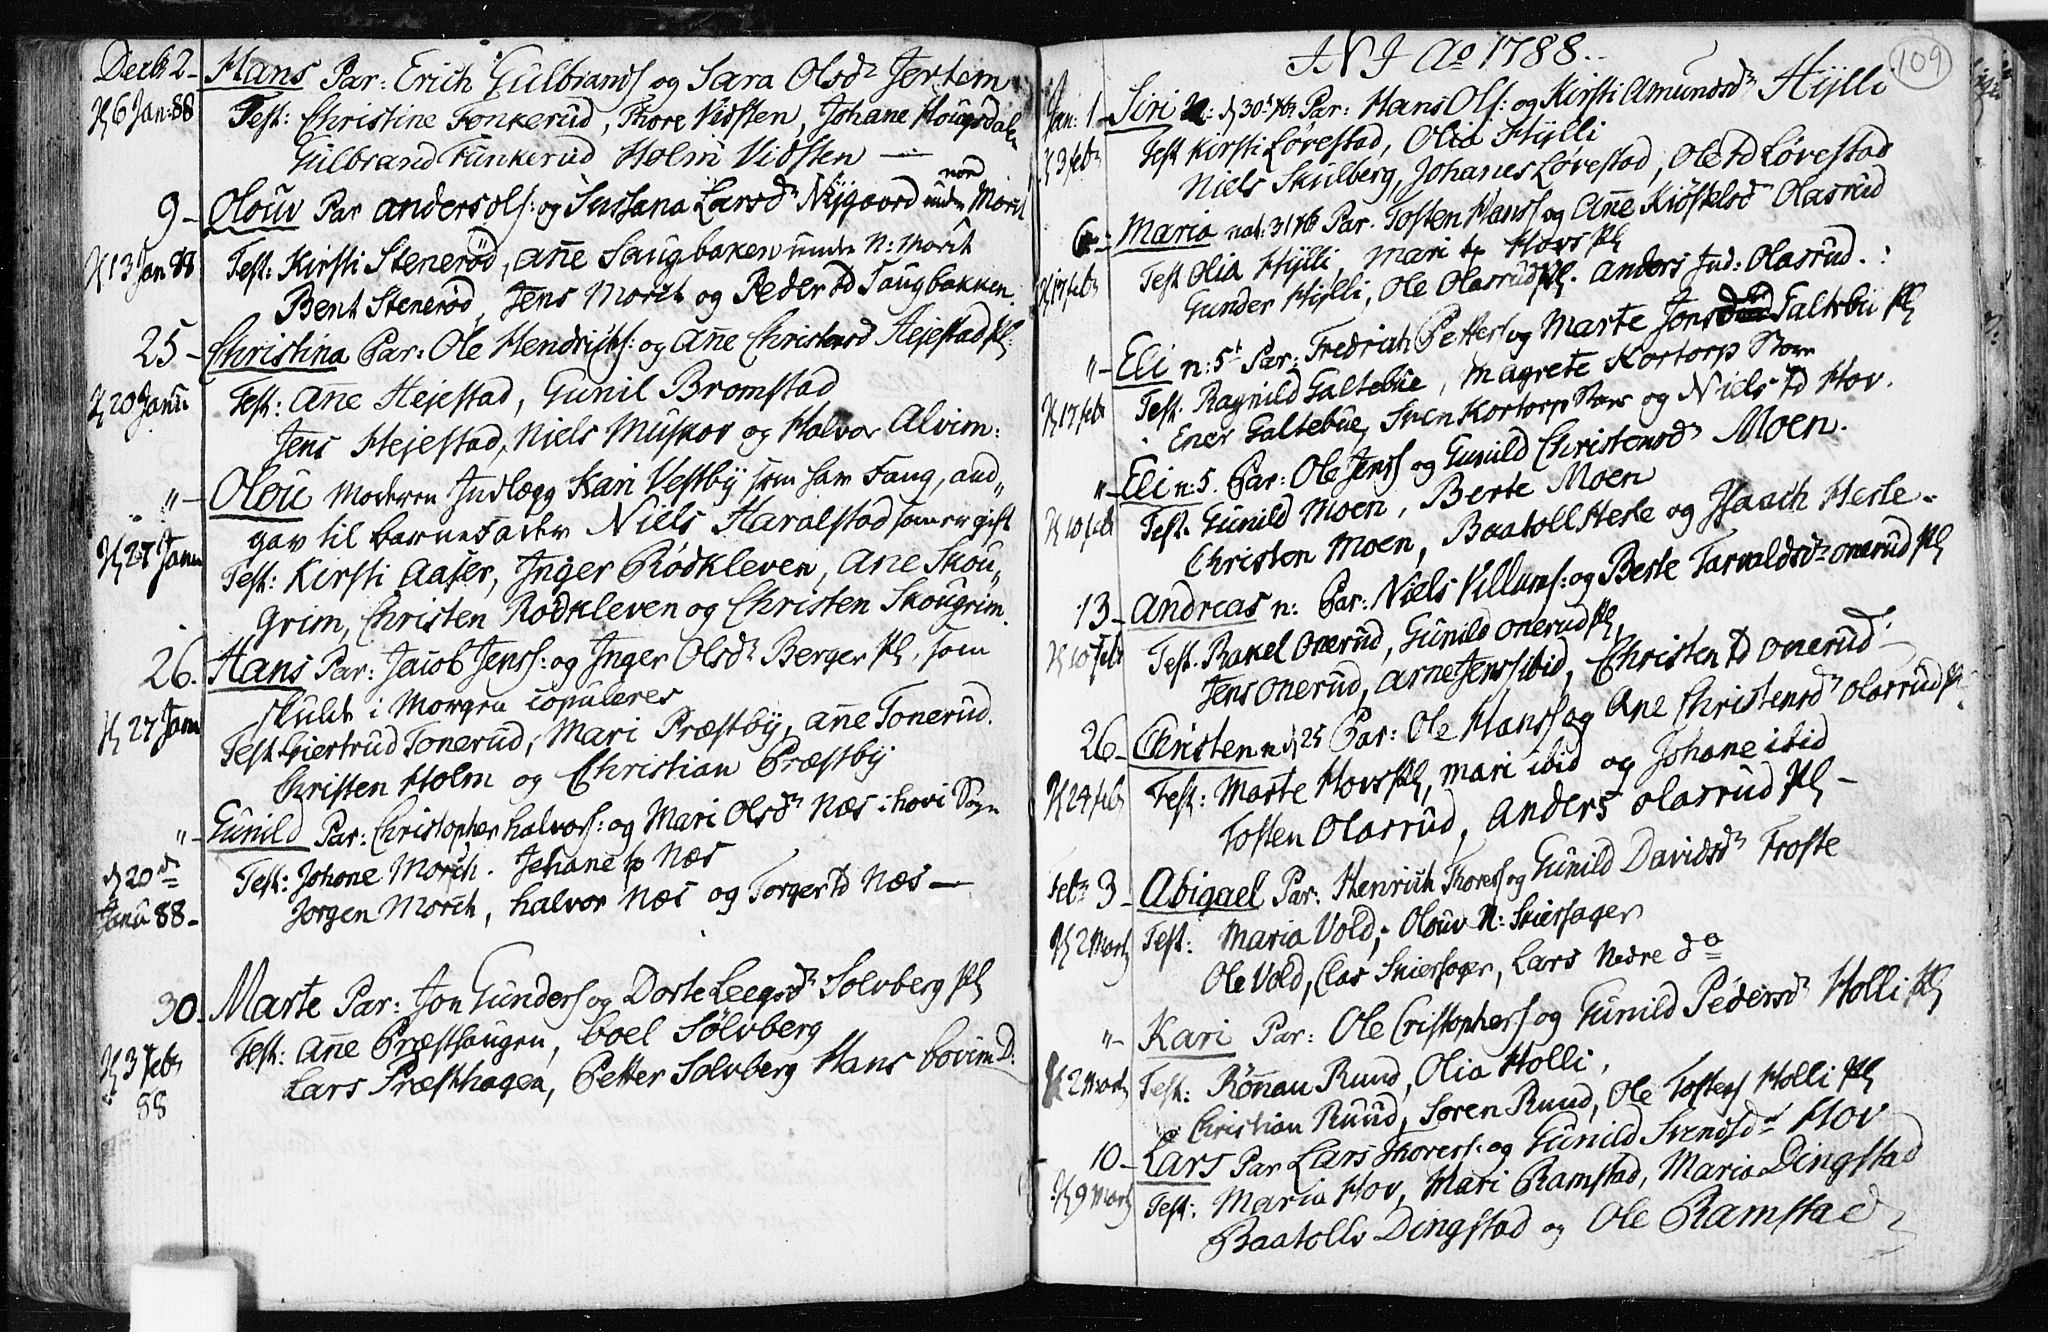 Decbr 2 - Hans Par: Erich Gulbrands og Sara Olsdr Jertem
K 6 Jan: 88 Test: Christine Fonkerud, Thore Vidsten, Johane Hougsdalen
Gulbrand Funkerud Holm Vidsten -
9 - Olouv Par Anders Ols: og Susana Larsdr Nÿgaard under nor Morch
K 13 Jan 88 Test: Kirsti Stenerød, Ane Saugbaken under N: Morch
Bent Stenerød, Jens Morch og Peder td Saugbakken.
25 - Christina Par: Ole Hendrichs: og Ane Christensd Hejestad pl:
K 20 Janu Test: Ane Hejestad, Gunil Bromstad
Jens Hejestad, Niels Muskov og Halvor Alvim:
" - Olou Moderen Indlagg Kari Vestbÿ som har Fang, aud"
gav til barnefader Niels Haralstad som er gift
K 27 Janu Test: Kirsti Aaser, Inger Rødkleven, Ane Skou"
grim, Christen Rodkleven og Christen Skougrim.
26. Hans Par: Jacob Jens: og Inger Olsdr Berger pl, som
skulde i Morgen copuleres
K 27 Janu Test Giertrud Tonerud, Mari Præstbÿ, Ane Tonerud.
Christen Holm og Christian Præstbÿ
" - Gunild Par: Christopher halvors: og Mari Olsdr Næs i hovi Sogn
d 20de Janu 88 - Test: Johane Morch. Jehane tp Næs
Jorgen Morch, halvor Næs og Torger td Næs -
30 - Marte Par: Jon Gunders og Dorte Leegsdr Solvberg pl
K 3 Febr 88 Test: Ane Præsthaugen, boel Sølvberg
Lars Præsthagen, Petter Solvberg Hans bovim D:
I N J Ao 1788.
109
Jan: 1 - Siri n: d 30 Xbr Par: Hans Ols: og Kirsti Amundsdr Hÿlli
K 3 febr Test Kirsti Løvestad, Olia Hÿlli
Niels Skulberg, Johanes Løvestad, Ole td Løvestad
6 - Maria nat: 31 Xbr Par. Tosten Hans og Ane Kiøstelsd Olasrud
K 17 febr Test Olia Hÿlli, Mari tp Hovs pl
Gunder Hÿlli, Ole Olasrud pl. Anders Ind: Olasrud.
" - Eli n: 5t Par: Fredrich Petters og Marte Jonsd Galtebu pl
K 17 febr Test. Ragnild Galtebue, Magrete Kortorp Store
Ener Galtebue, Sven Kortorp Store og Niels td Hov.
" - Eli n: 5. Par: Ole Jens og Gunild Christensdr Moen.
K 10 febr Test. Gunild Moen, Berte Moen
Christen Moen, Baatoll Herle og Isaach Herle -
13 - Andreas n: Par: Niels Villums: og Berte Tarvaldsdr Onerud pl
K 10 febr Test. Rakel Onerud, Gunild Onerud pl,
Jens Onerud, Arne Jens ibid, Christen td Onerud
26 - Christen n d 25 Par: Ole Hans og Ane Christensdr Olasrud pl
K 24 febr Test: Marte Hovs pl, Mari ibid og Johane ibid
Tosten Olasrud, Anders Olasrud pl -
Febr 3 - Abigael Par: Henrich Thores og Gunild Davidsdr Froste
K 2 Marts Test: Maria Vold, Olouv N: Skiersager
Ole Vold, Clas Skiersager, Lars Nedre do
" - Kari Par: Ole Cristophers og Gunild Pedersdr Holli pl
K 2 Marts Test: Rønnau Ruud, Olia Holli,
Christian Ruud, Soren Ruud, Ole Tostens Holli pl
10 - Lars Par Lars Thores: og Gunild Svendsdr Hov
K 9 Marts Test: Maria Hov, Mari Ramstad, Maria Dingstad
Baatolv Dingstad og Ole Ramstad